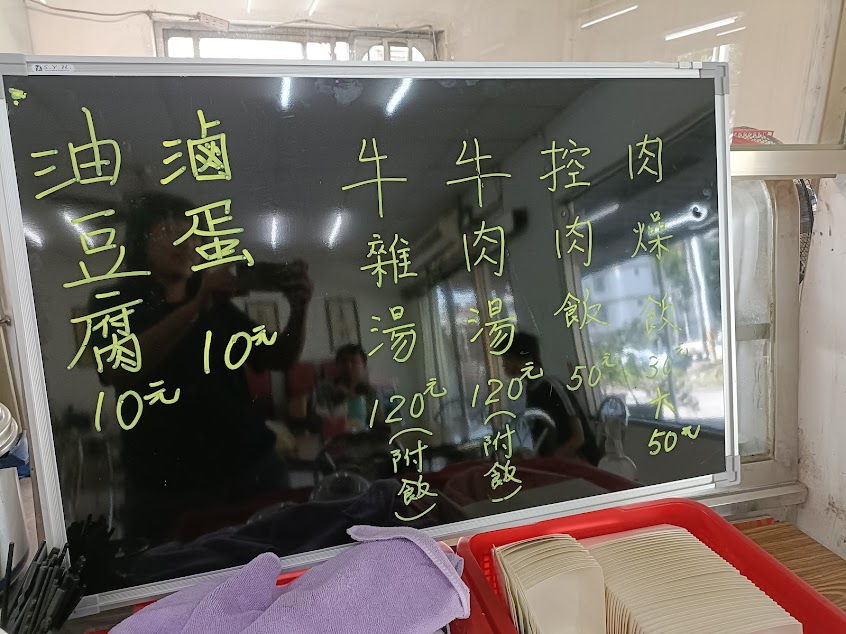 肉燥飯 30元
大 50元
控肉飯 50元
牛肉湯 120元(附飯)
牛雜湯 120元(附飯)
滷蛋 10元
油豆腐 10元
S.Y.H.